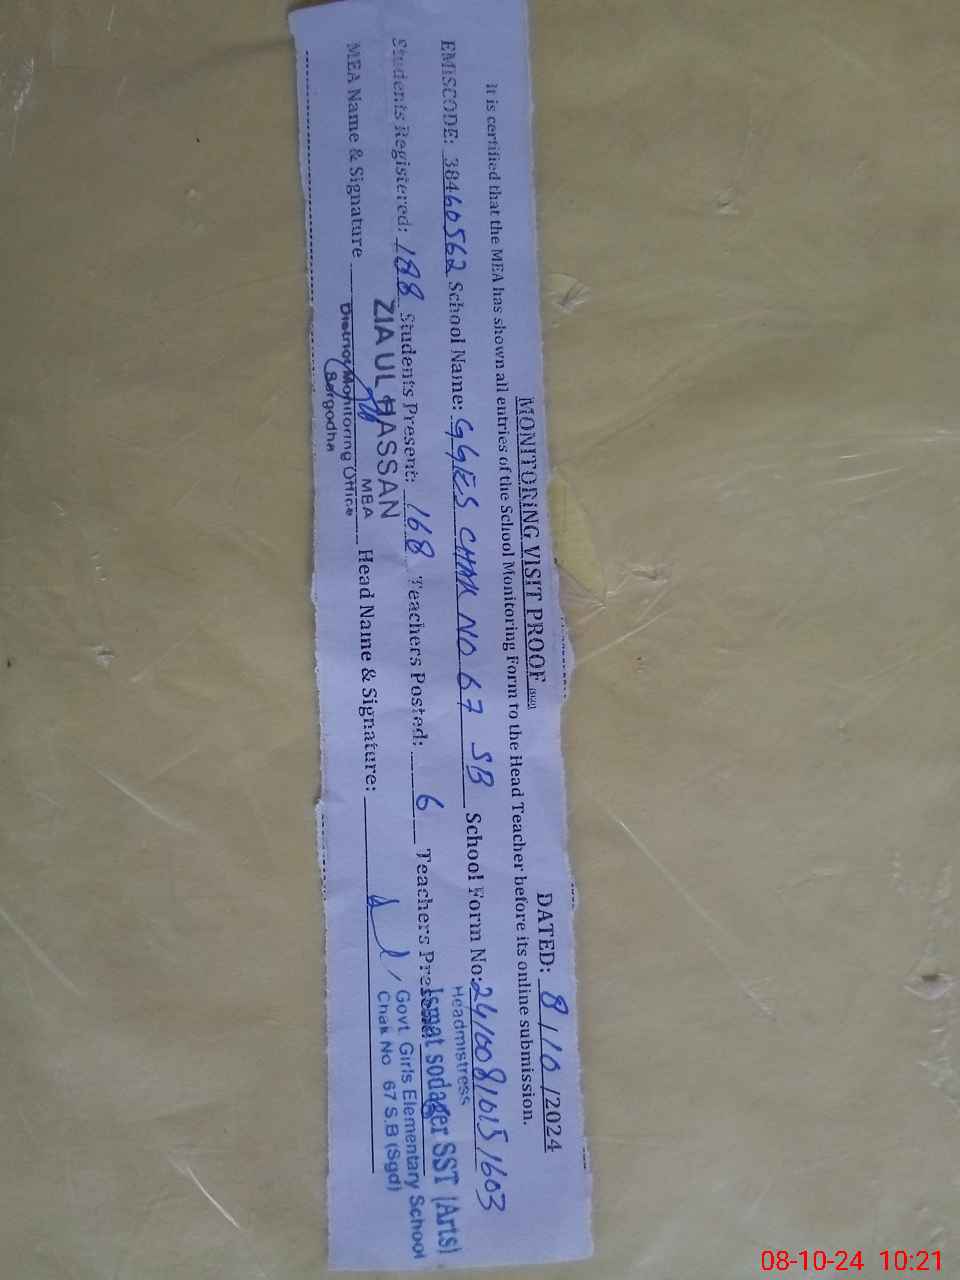 MONITORING VISIT PROOF
DATED: 8/10/2024
It is certified that the MEA has shown all entries of the School Monitoring Form to the Head Teacher before its online submission.
EMISCODE: 38460562 School Name: GGES CHAK NO 67 SB School Form No: 24100810151603
Students Registered: 188 Students Present: 168 Teachers Posted: 6 Teachers Present
MEA Name & Signature Head Name & Signature:
ZIA UL HASSAN
MEA
District Monitoring Office
Sargodha
Headmistress
Ismat sodager SST (Arts)
Govt. Girls Elementary School
Chak No 67 S.B (Sgd)
08-10-24 10:21